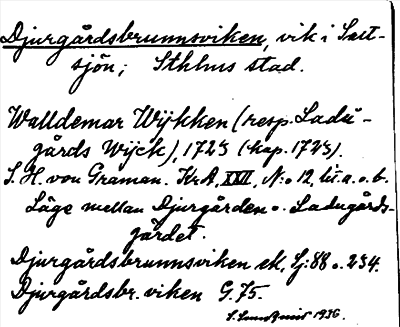 Djurgårdsbrunnsviken, vik i Salt-
sjön; Sthlms stad.
Walldemar Wÿkken (resp. Ladu-
gårds Wÿck), 1723 (kop. 1723).
S. H. von Graman. Kr.A, XXII, N:o 12, lit. a. o. b.
Läge mellan Djurgården o. Ladugårds-
gärdet.
Djurgårdsbrunnsviken ek, Lj: 88 o. 234.
Djurgårdsbr. viken G. 75.
1936.